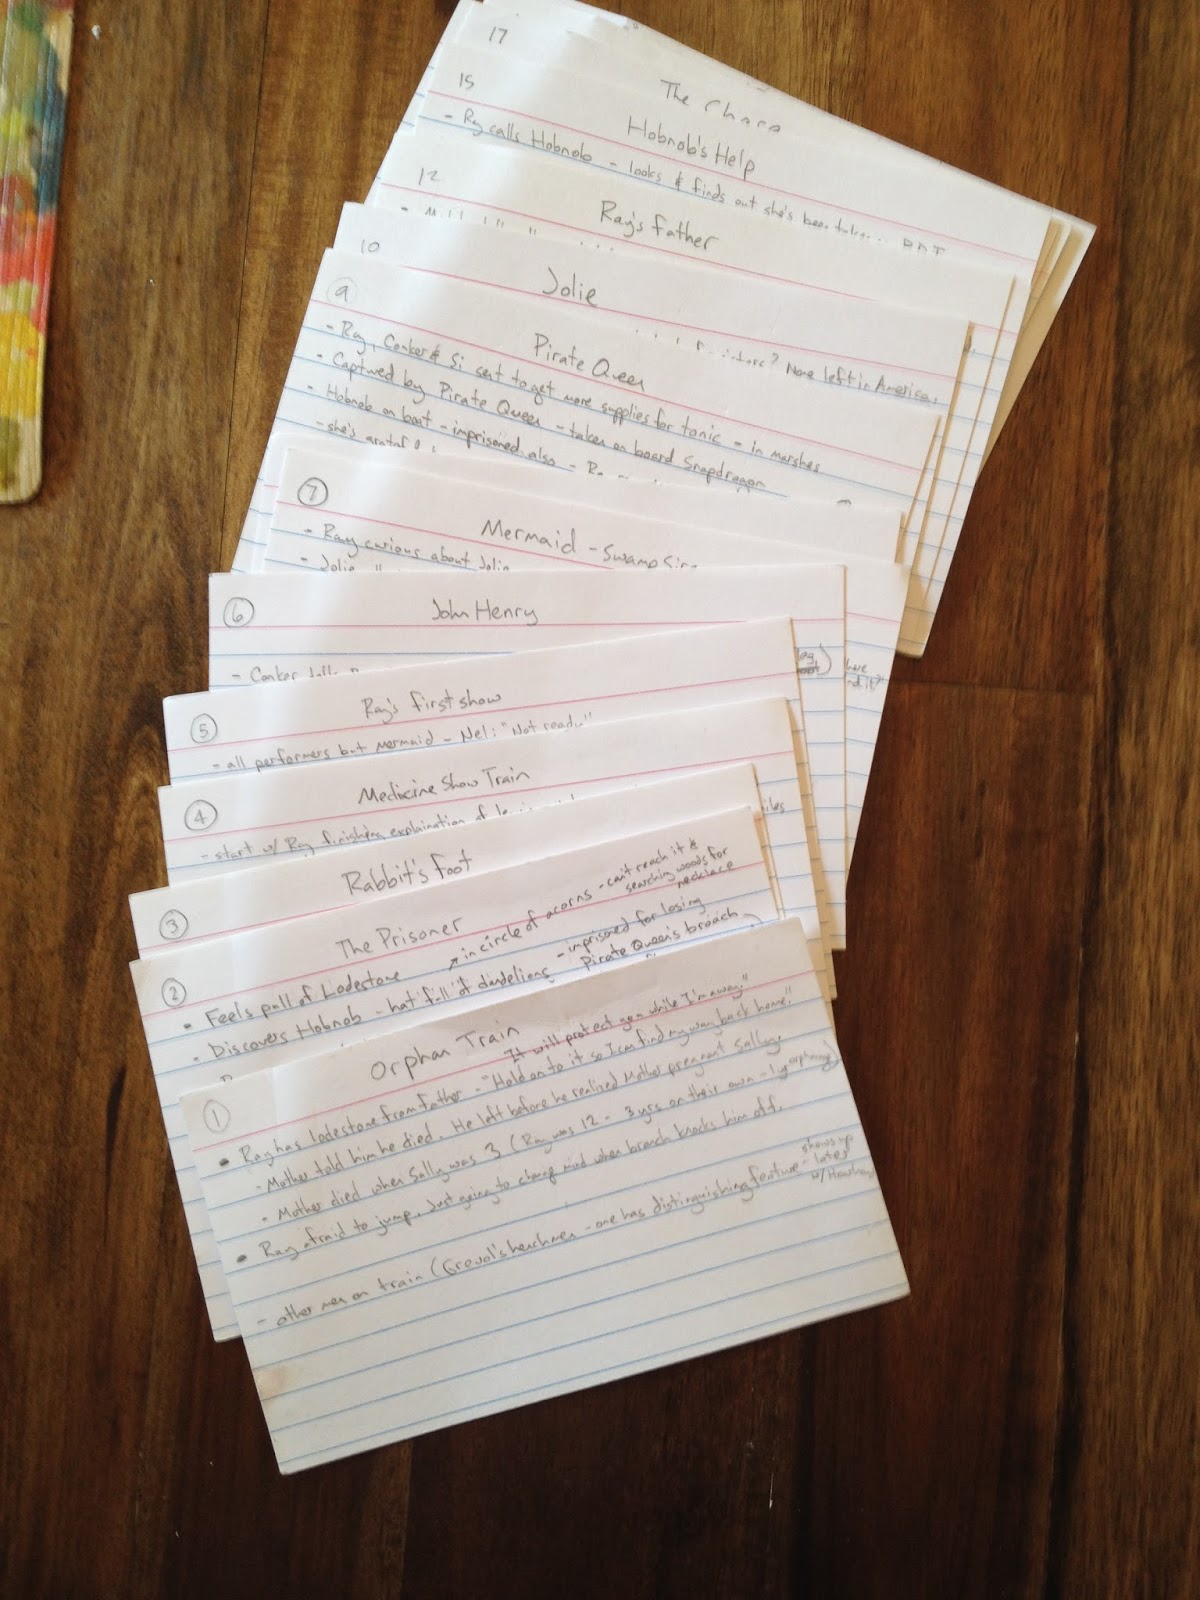 17
The
15
Hobnob's Help
- Ray calls Hobnob - looks & finds out she's been
12
Ray's Father
10
Jolie
None left in America.
9
Pirate Queen
- Ray, Conker & Si sent to get more supplies for tonic - in marshes
- Captured by Pirate Queen - taken on board Snapdragon
- Hobnob on boat - imprisoned also -
- she's
7
Mermaid - Swamp
- Ray curious about Jolie
- Jolie
6
John Henry
- Conker
5
Ray's first show
- all performers but mermaid - Nel: "Not ready"
4
Medicine Show Train
- start w/ Ray finishing explaination of
3
Rabbit's Foot
2
The Prisoner
• Feels pull of Lodestone
in circle of acorns - can't reach it &
searching woods for
necklace
• Discovers Hobnob - hat full of dandelions - imprisoned for losing
Pirate Queen's broach
1
Orphan Train
It will protect you while I'm away."
• Ray has lodestone from Father - "Hold on to it so I can find my way back home."
- Mother told him he died. He left before he realized Mother pregnant Sally.
- Mother died when Sally was 3 (Ray was 12 - 3 yrs on their own - 1 y orphanage)
• Ray afraid to jump. Just going to change mind when branch knocks him off.
- other men on train (Grevol's henchmen - one has distinguishing feature - shows up
later